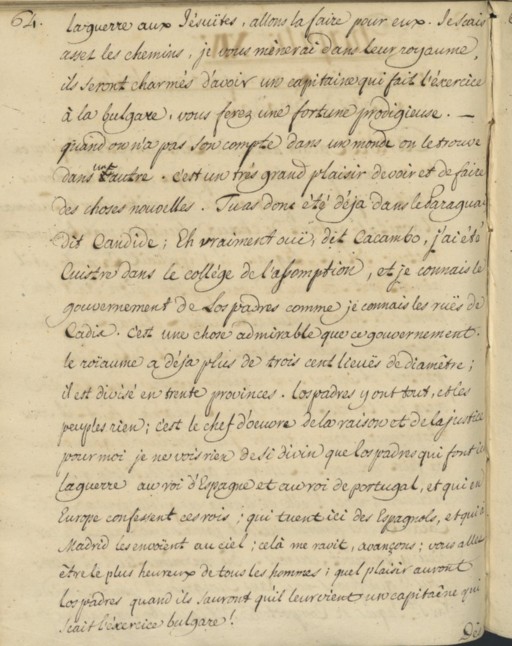 64.
la guerre aux Jésuïtes, allons la faire pour eux. Je scais
assez les chemins, je vous mènerai dans leur royaume,
ils seront charmés d'avoir un capitaine qui fait l'éxercice
à la bulgare, vous ferez une fortune prodigieuse. —
quand on n'a pas son compte dans un monde on le trouve
dans un autre. c'est un très grand plaisir de voir et de faire
des choses nouvelles. Tu as donc été déja dans le Paraguai
dit Candide; Eh vraiment ouï, dit Cacambo, j'ai été
Cuistre dans le collége de l'assomption, et je connais le
gouvernement de Los padres comme je connais les ruës de
Cadix. C'est une chose admirable que ce gouvernement.
le roïaume a déja plus de trois cent lieuës de diamètre;
il est divisé en trente provinces. Los padres y ont tout, et les
peuples rien; c'est le chef d'oeuvre de la raison et de la justice
pour moi je ne vois rien de si divin que Los padres qui font ici
la guerre au roi d'Espagne et au roi de portugal, et qui en
Europe confessent ces rois; qui tuent ici des Espagnols, et qui à
Madrid les envoïent au ciel; celà me ravit, avançons; vous allez
être le plus heureux de tous les hommes; quel plaisir auront
Los padres quand ils sauront qu'il leur vient un capitaine qui
scait l'éxercice bulgare!
Dès